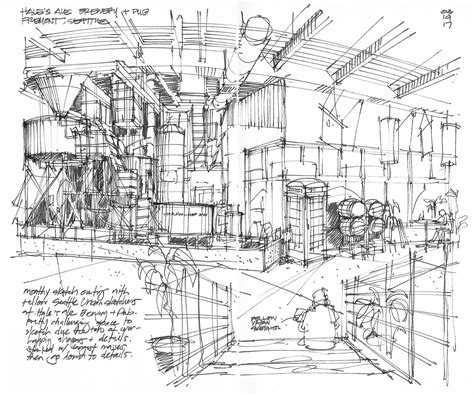 HALE'S ALES BREWERY + PUB
FREMONT, SEATTLE
03
19
17
monthly sketch outing with
fellow Seattle Urban Sketchers
at Hale's Ale Brewery + Pub.
Pretty challenging space to
sketch due to lots of over-
happin' shapes + details.
Started w/ largest masses,
then
down to details.
FELLOW
URBAN
SKETCHER